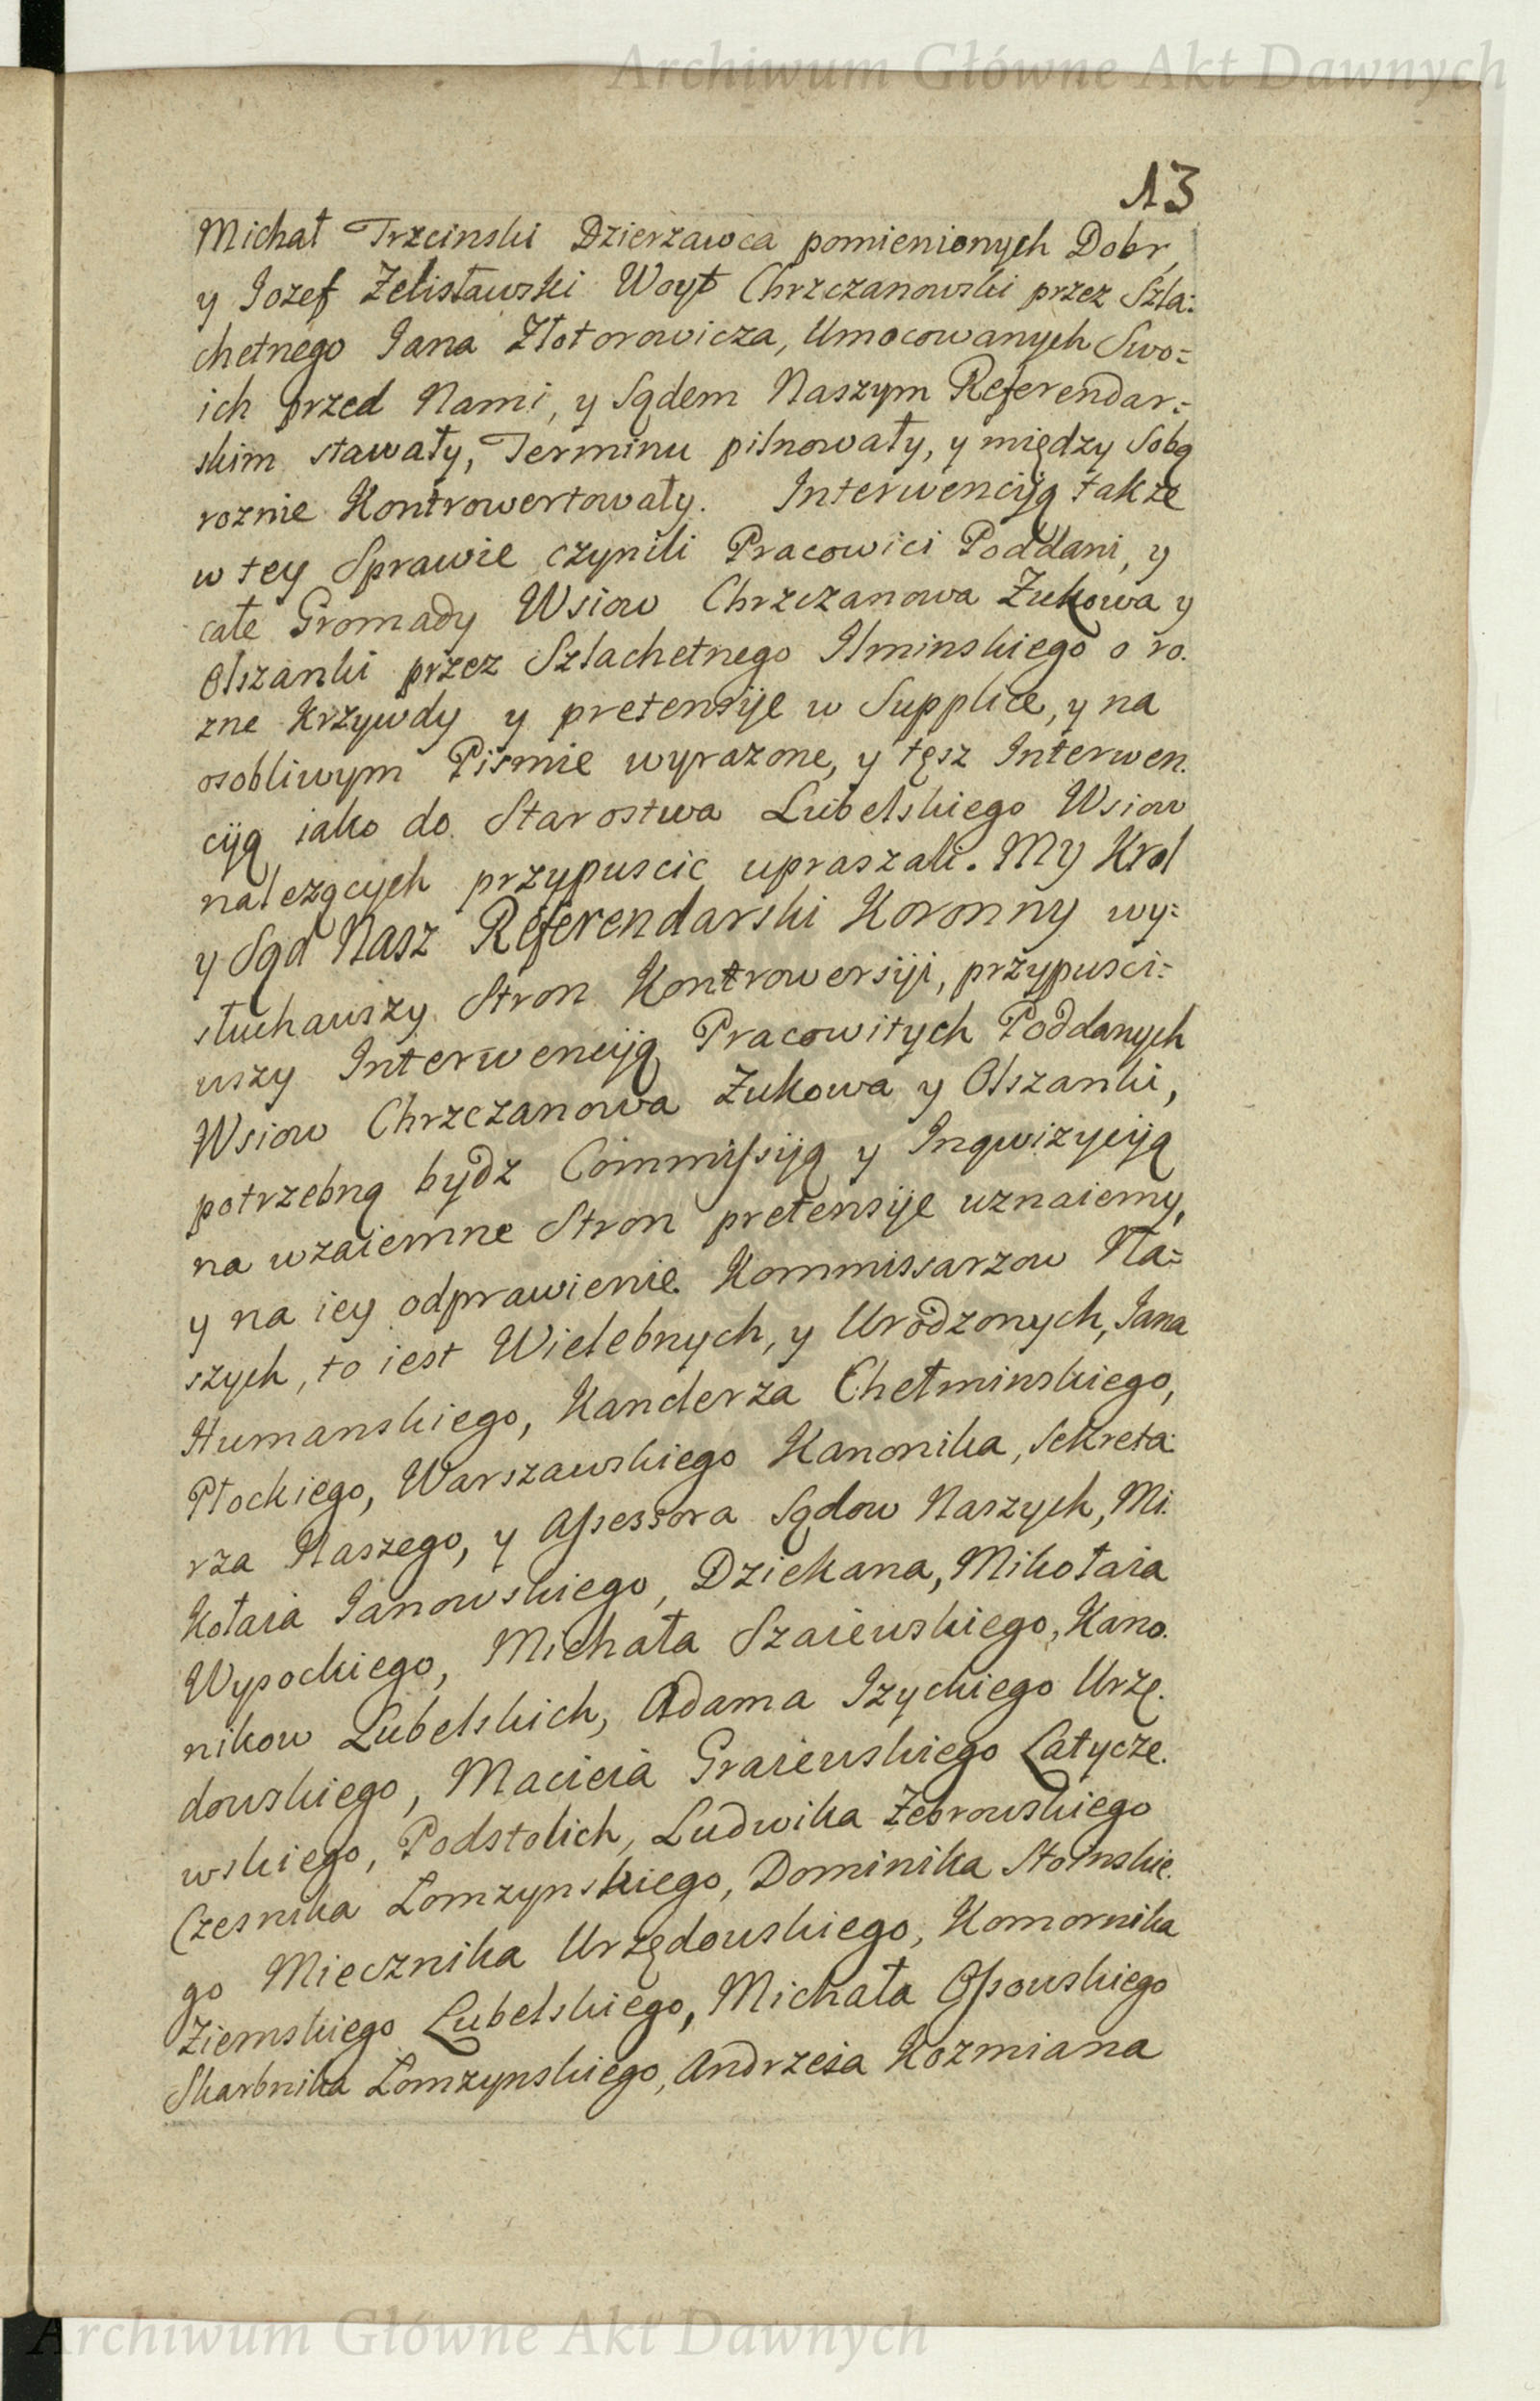 Archiwum Główne Akt Dawnych
13
Michał Trzcinski Dzierzawca pomienionych Dobr,
y Jozef Zelisławski Woyt Chrzczanowski przez Szla:
chetnego Jana Złotorowicza, Umocowanych Swo=
ich przed Nami, y Sądem Naszym Referendar:
skim stawały, Terminu pilnowały, y między Sobą
roznie Kontrowertowały. Interwencyją także
w tey Sprawie czynili Pracowici Poddani, y
całe Gromady Wsiow Chrzczanowa Żukowa y
Olszanki przez Szlachetnego Ilminskiego o ro.
zne Krzywdy y pretensije w Supplice, y na
osobliwym Pismie wyrazone, y tęsz Interwen.
cyją iako do Starostwa Lubelskiego Wsiow
nalezących przypuscic upraszali. My Krol
y Sąd Nasz Referendarski Koronny wy:
słuchawszy Stron Kontrowersyi, przypusci:
wszy Interwencyją Pracowitych Poddanych
Wsiow Chrzczanowa Żukowa y Olszanki,
potrzebną bydz Commissyją y Inqwizycyją
na wzaiemne Stron pretensije uznaiemy,
y na iey odprawienie Kommissarzow Na=
szych, to iest Wielebnych, y Urodzonych, Jana
Humanskiego, Kanclerza Chełminskiego,
Płockiego, Warszawskiego Kanonika, Sekreta:
rza Naszego, y Assessora Sądow Naszych, Mi.
kołaia Janowskiego, Dziekana, Mikołaia
Wysockiego, Michała Szaiewskiego, Kano.
nikow Lubelskich, Adama Izyckiego Urzę.
dowskiego, Macieia Graiewskiego Łatycze.
wskiego, Podstolich, Ludwika Żebrowskiego
Czesnika Łomzynskiego, Dominika Stoinskie.
go Miecznika Urzędowskiego, Komornika
Ziemskiego Lubelskiego, Michała Ossowskiego
Skarbnika Łomzynskiego, Andrzeia Kozmiana
Archiwum Główne Akt Dawnych